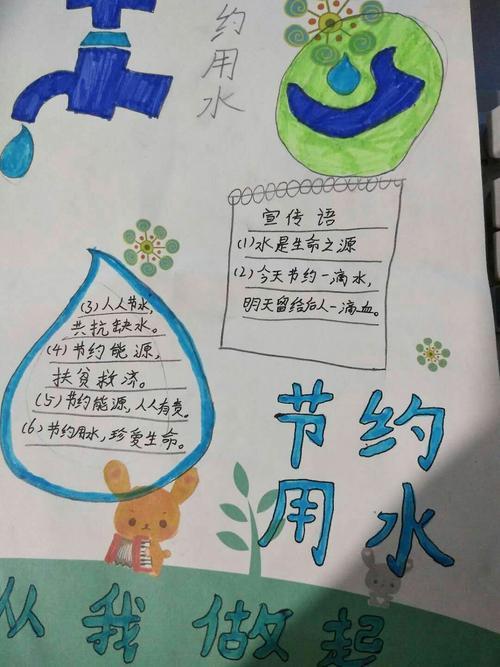 约用水
宣传语
(1)水是生命之源
(2)今天节约一滴水,
明天留给后人一滴血。
(3)人人节水,
共抗缺水。
(4)节约能源,
扶贫救济。
(5)节约能源,人人有责。
(6)节约用水,珍爱生命。
节约
用水
从我做起